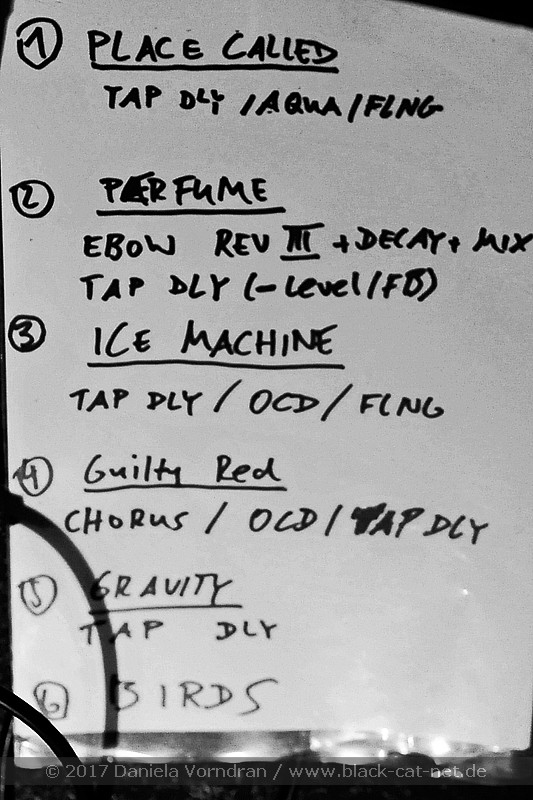 1 PLACE CALLED
TAP DLY / AQUA / FLNG
2 PERFUME
EBOW REV III + DECAY + MIX
TAP DLY (- Level/FB)
3 ICE MACHINE
TAP DLY / OCD / FLNG
4 Guilty Red
CHORUS / OCD / TAP DLY
5 GRAVITY
TAP DLY
6 BIRDS
© 2017 Daniela Vorndran / www.black-cat-net.de